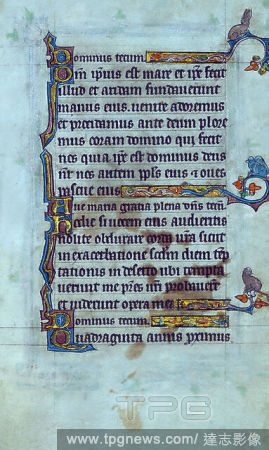 Dominus tecum
Qm ip̄ius est mare et ip̄e fecit
illud et aridam fundaverunt
manus eius. venite adoremus
et procidamus ante deum plore
mus coram domino qui fecit
nos quia ip̄e est dominus deus
nr̄ nos autem ppl̄s eius et oves
pascue eius
Ave maria gratia plena dn̄s tecū
Hodie si vocem eius audieritis
nolite obdurare corda vr̄a sicut
in exacerbatione scd̄m diem tēp
tationis in deserto ubi tempta
verunt me pr̄es vr̄i probaver̄
et viderunt opera mea
Dominus tecum
Quadraginta annis proximus
TPG
www.tpgnews.com/ 達志影像